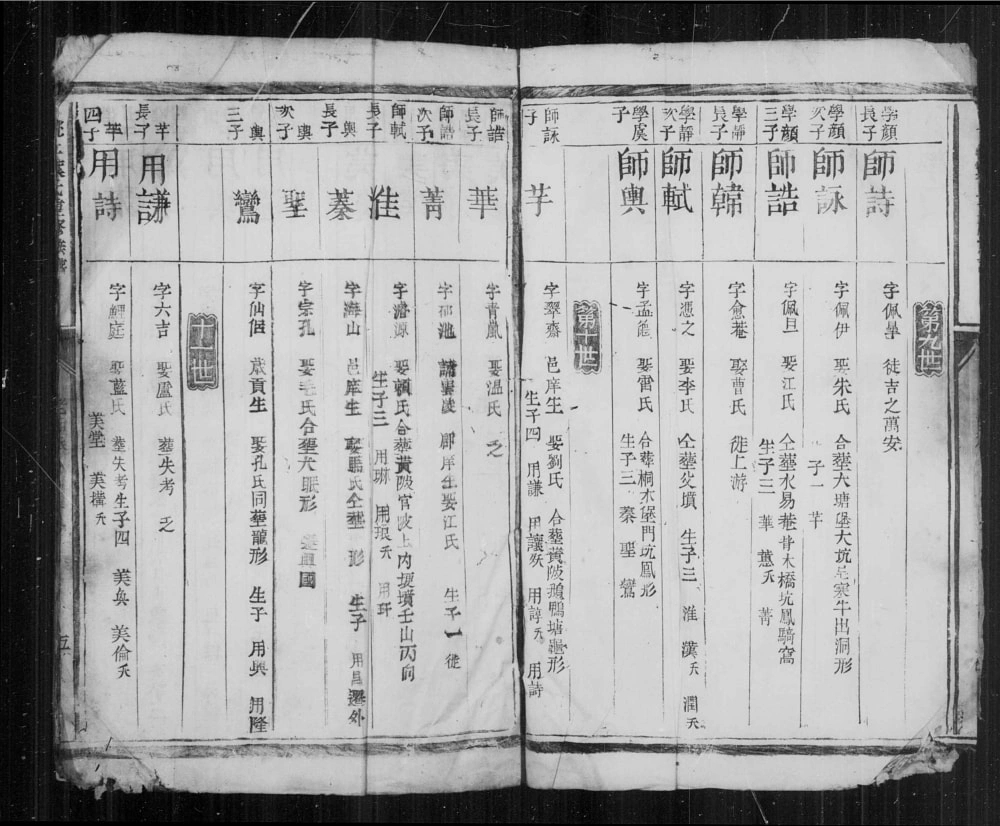 第九世
學顏長子
師詩
字佩臯 徒吉之萬安
學顏次子
師詠
字佩伊 娶朱氏 合塟大塘堡大坑 犀牛出洞形
子一 芋
學顏三子
師誥
字佩旦 娶江氏 仝塟水易菴背木橋坑鳳騎窩
生子三 華 蕙夭 菁
學靜長子
師韓
字愈菴 娶曹氏 徙上游
學靜次子
師軾
字憑之 娶李氏 仝塟父墳 生子三 淮 漢夭 潤夭
學虞子
師輿
字孟 娶雷氏 合葬桐木堡門坑鳳形
生子三 蓁 聖 鸞
第十世
師詠子
芋
字翠齋 邑庠生 娶劉氏 合塟黃陂 鴨塘 形
生子四 用謙 用讓 用諄夭 用詩
師誥長子
華
字青嵐 娶溫氏 乏
師誥次子
菁
字 池 郡庠生娶江氏 生子一 徙
師軾長子
淮
字濬源 娶賴氏合葬黃陂官陂上內埂墳壬山丙向
生子三 用琳 用琅夭 用環
輿長子
蓁
字海山 邑庠生 娶 氏仝塟 形 生子 用昌遷外
輿次子
聖
字宗孔 娶毛氏合塟犬眠形
輿三子
鸞
字仙侶 歲貢生 娶孔氏同塟龍形 生子 用興 用隆
十一世
芋長子
用謙
字六吉 娶盧氏 塟失考 乏
芋四子
用詩
字鯉庭 娶藍氏 塟失考生子四 美奐 美倫夭
美堂 美構夭
五